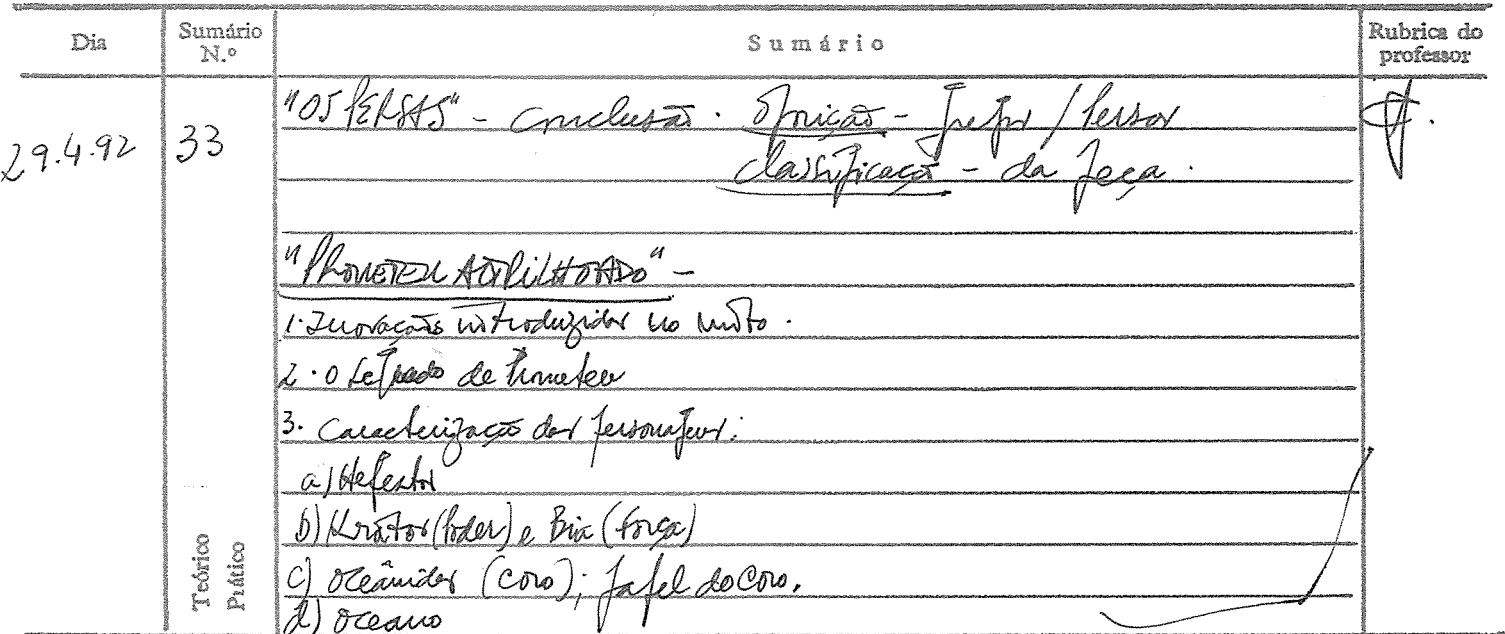 Dia Sumário N.º Sumário Rubrica do professor
29.4.92 33 "OS PERSAS" - Conclusão. Oposição - Gregos / Persas
Classificação - da peça.
"PROMETEU AGRILHOADO" -
1. Inovações introduzidas no mito.
2. O de Prometeu
3. Caracterização das personagens:
a) Hefestos
b) Krátos (Poder) e Bia (força)
c) Oceânides (Coro); papel do Coro.
d) Oceano
Teórico
Prático